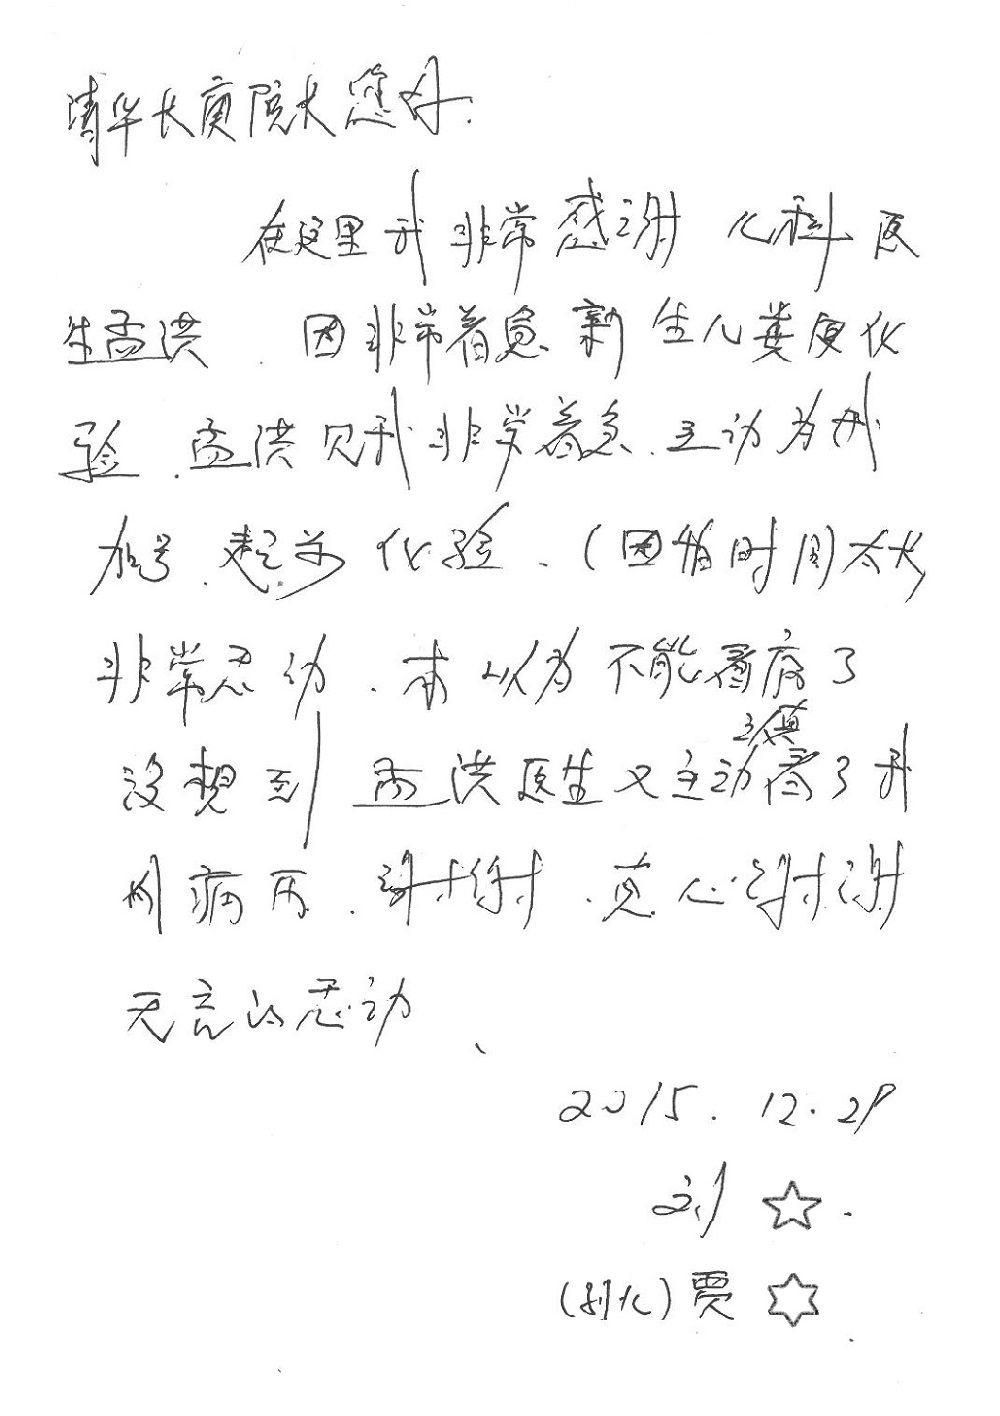 清华长庚院长您好.
在这里我非常感谢儿科医
生孟洪.因非常着急新生儿粪便化
验.孟洪见我非常着急.主动为我
加号.提前化验.(因怕时间太长)
非常感动.本以为不能看病了
没想到孟洪医生又主动认真看了我
们病历.谢谢.真心谢谢
无言的感动、
2015.12.29
刘☆.
(别化)贾✡